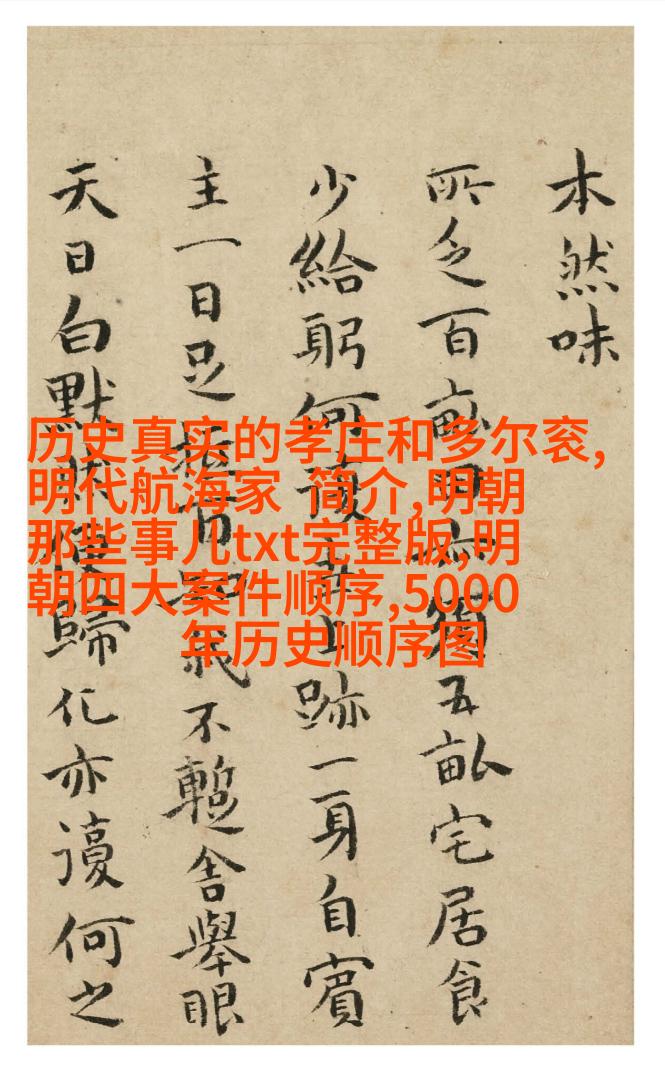 本然味
所乏百畝田獨五畝宅居食
少給躬何復上跡一身自賓
主一日足我不蹔舍舉眼
天日白默默歸化亦復何之
历史真实的孝庄和多尔衮,
明代航海家 简介,明朝
那些事儿txt完整版,明
朝四大案件顺序,5000
年历史顺序图